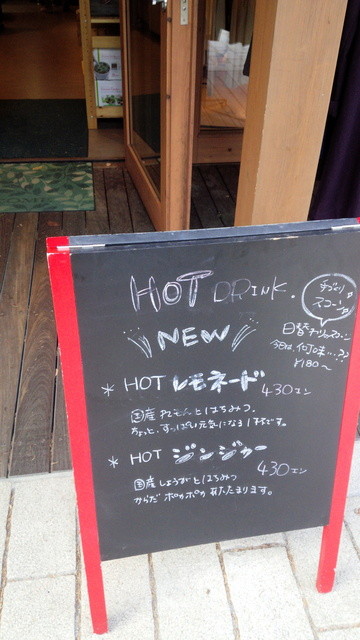 HOT DRINK.
NEW
チヂリ
スコーン
日替チヂリスコーン
今日は、何味…??
¥180〜
* HOT レモネード 430エン
国産 れもんとはちみつ。
ちょっと、すっぱい元気になる1杯です。
* HOT ジンジャー 430エン
国産 しょうがとはちみつ
からだ ポカポカ あたたまります。